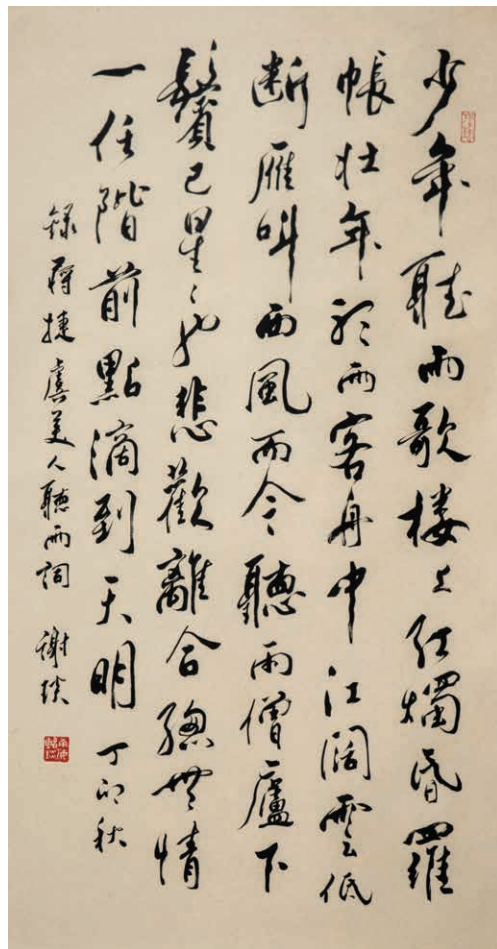 少年聽雨歌樓上紅燭昏羅
帳壯年聽雨客舟中江闊雲低
斷雁叫西風而今聽雨僧廬下
鬢已星〻也悲歡離合總無情
一任階前點滴到天明 丁卯秋
錄蔣捷虞美人聽雨詞 謝琰